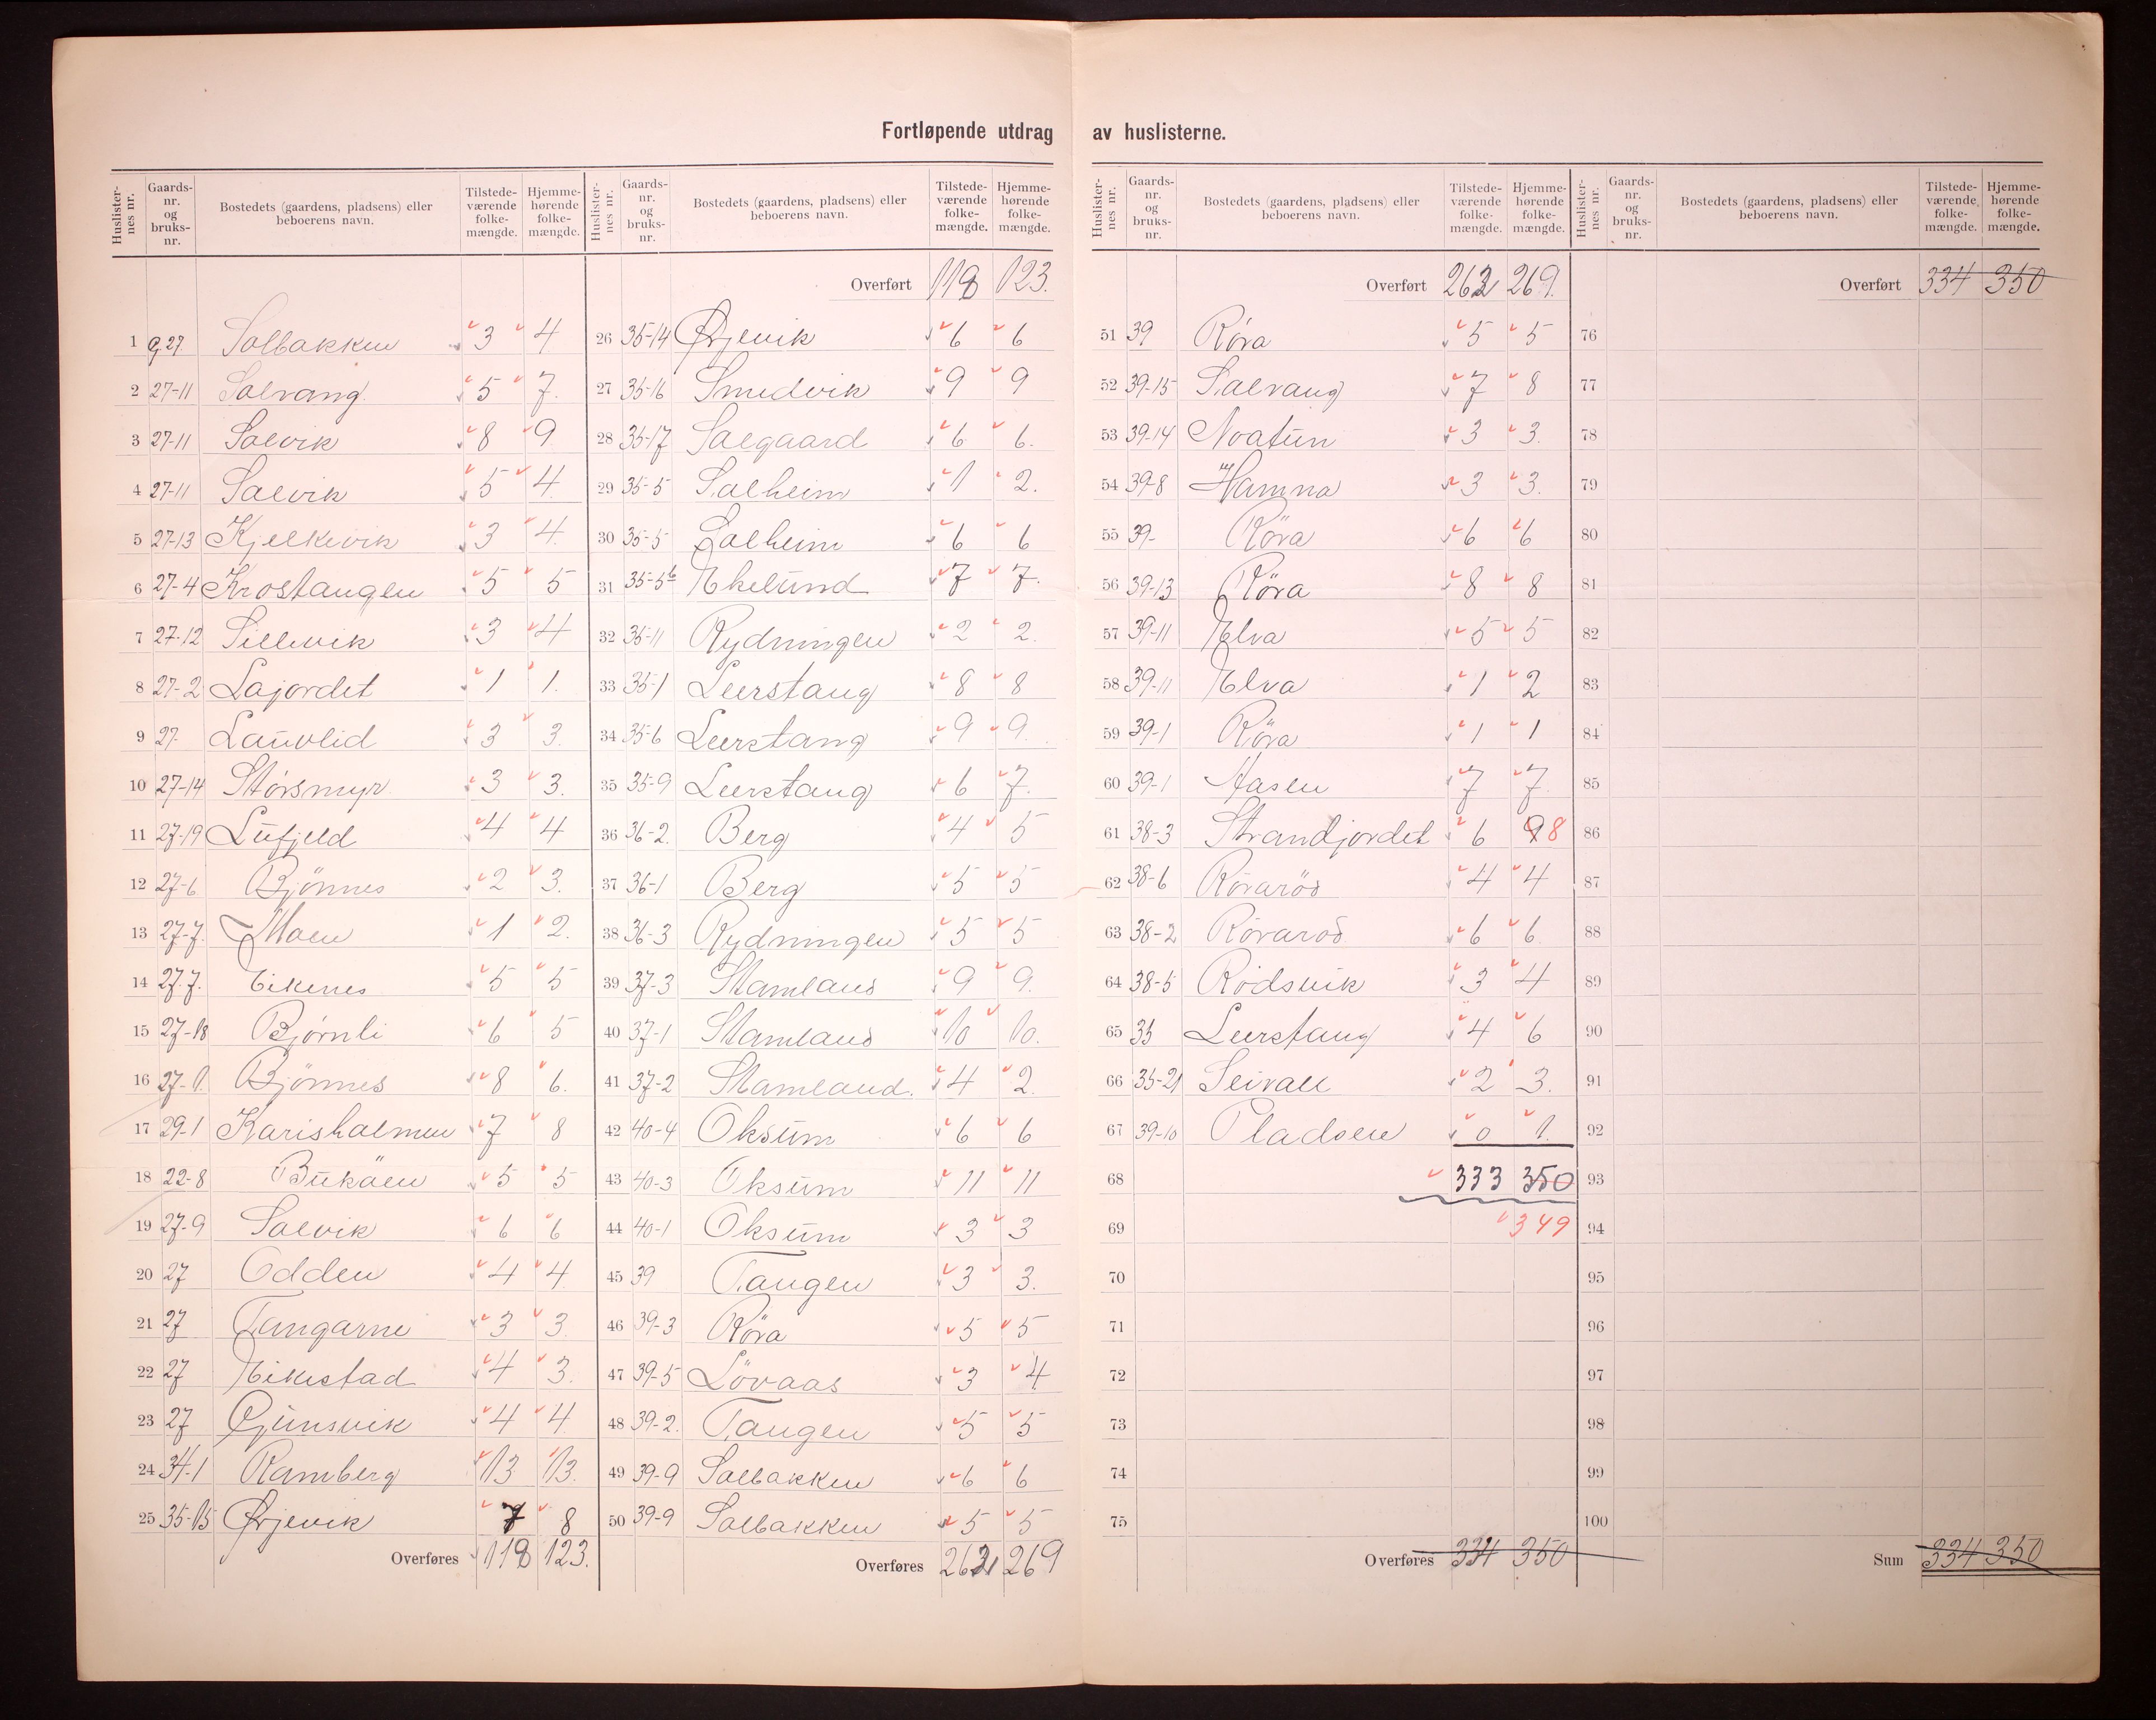 Fortløpende utdrag av huslisterne.
Huslisternes nr. Gaards-nr. og bruks-nr. Bostedets (gaardens, pladsens) eller beboerens navn. Tilstedeværende folkemængde. Hjemmehørende folkemængde.
1 27 Solbakken 3 4
2 27-11 Solvang 5 7
3 27-11 Solvik 8 9
4 27-11 Solvik 5 4
5 27-13 Kjelkevik 3 4
6 27-4 Krostangen 5 5
7 27-12 Sillevik 3 4
8 27-2 Lajordet 1 1.
9 27 Lauvlid 3 3.
10 27-14 Størsmyr 3 3.
11 27-19 Lufjeld 4 4
12 27-6 Bjönnes 2 3.
13 27-7 Moen 1 2.
14 27-7. Eikenes 5 5
15 27-18 Bjørnli 6 5
16 27-1 Bjönnes 8 6.
17 29-1 Karisholmen 7 8
18 22-8 Bukåen 5 5
19 27-9 Solvik 6 6
20 27 Odden 4 4
21 27 Tangarne 3 3
22 27 Eikestad 4 3.
23 27 Gjunsvik 4 4
24 34-1 Ramberg 13 13.
25 35-15 Ørjevik 7 8
Overføres 118 123.
Huslisternes nr. Gaards-nr. og bruks-nr. Bostedets (gaardens, pladsens) eller beboerens navn. Tilstedeværende folkemængde. Hjemmehørende folkemængde.
Overført 118 123.
26 35-14 Ørjevik 6 6
27 35-16 Smedvik 9 9
28 35-17 Solgaard 6 6.
29 35-5 Solheim 1 2.
30 35-5 Solheim 6 6
31 35-5b Ekelund 7 7.
32 35-11 Rydningen 2 2.
33 35-1 Leerstang 8 8
34 35-6 Leerstang 9 9.
35 35-9 Leerstang 6 7.
36 36-2. Berg 4 5
37 36-1 Berg 5 5
38 36-3 Rydningen 5 5
39 37-3 Stamland 9 9.
40 37-1 Stamland 10 10.
41 37-2 Stamland. 4 2.
42 40-4 Oksum 6 6
43 40-3 Oksum 11 11
44 40-1 Oksum 3 3
45 39 Tangen 3 3.
46 39-3 Röra 5 5
47 39-5 Lövaas 3 4
48 39-2. Tangen 5 5
49 39-9 Solbakken 6 6
50 39-9 Solbakken 5 5
Overføres 262 269
Huslisternes nr. Gaards-nr. og bruks-nr. Bostedets (gaardens, pladsens) eller beboerens navn. Tilstedeværende folkemængde. Hjemmehørende folkemængde.
Overført 262 269.
51 39 Röra 5 5
52 39-15 Solvang 7 8
53 39-14 Noatun 3 3.
54 39-8 Hamna 3 3.
55 39- Röra 6 6
56 39-13 Röra 8 8
57 39-11 Elva 5 5
58 39-11 Elva 1 2
59 39-1 Röra 1 1
60 39-1 Aasen 7 7
61 38-3 Strandjordet 6 9 8
62 38-6 Rörarös 4 4
63 38-2 Rörarod 6 6
64 38-5 Rödsvik 3 4
65 35 Leerstang 4 6
66 35-21 Seivall 2 3.
67 39-10 Pladsen 0 1.
68 333 350
69 349
70
71
72
73
74
75
Overføres 334 350
Huslisternes nr. Gaards-nr. og bruks-nr. Bostedets (gaardens, pladsens) eller beboerens navn. Tilstedeværende folkemængde. Hjemmehørende folkemængde.
Overført 334 350
76
77
78
79
80
81
82
83
84
85
86
87
88
89
90
91
92
93
94
95
96
97
98
99
100
Sum 334 350